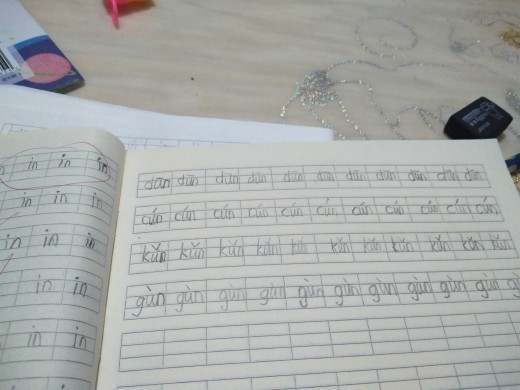 in in in
in in in
in in in
in in
in in
dūn dūn dūn dūn dūn dūn dūn dūn dūn dūn dūn
cún cún cún cún cún cún cún cún cún cún cún
kǔn kǔn kǔn kǔn kǔn kǔn kǔn kǔn kǔn kǔn kǔn
gùn gùn gùn gùn gùn gùn gùn gùn gùn gùn